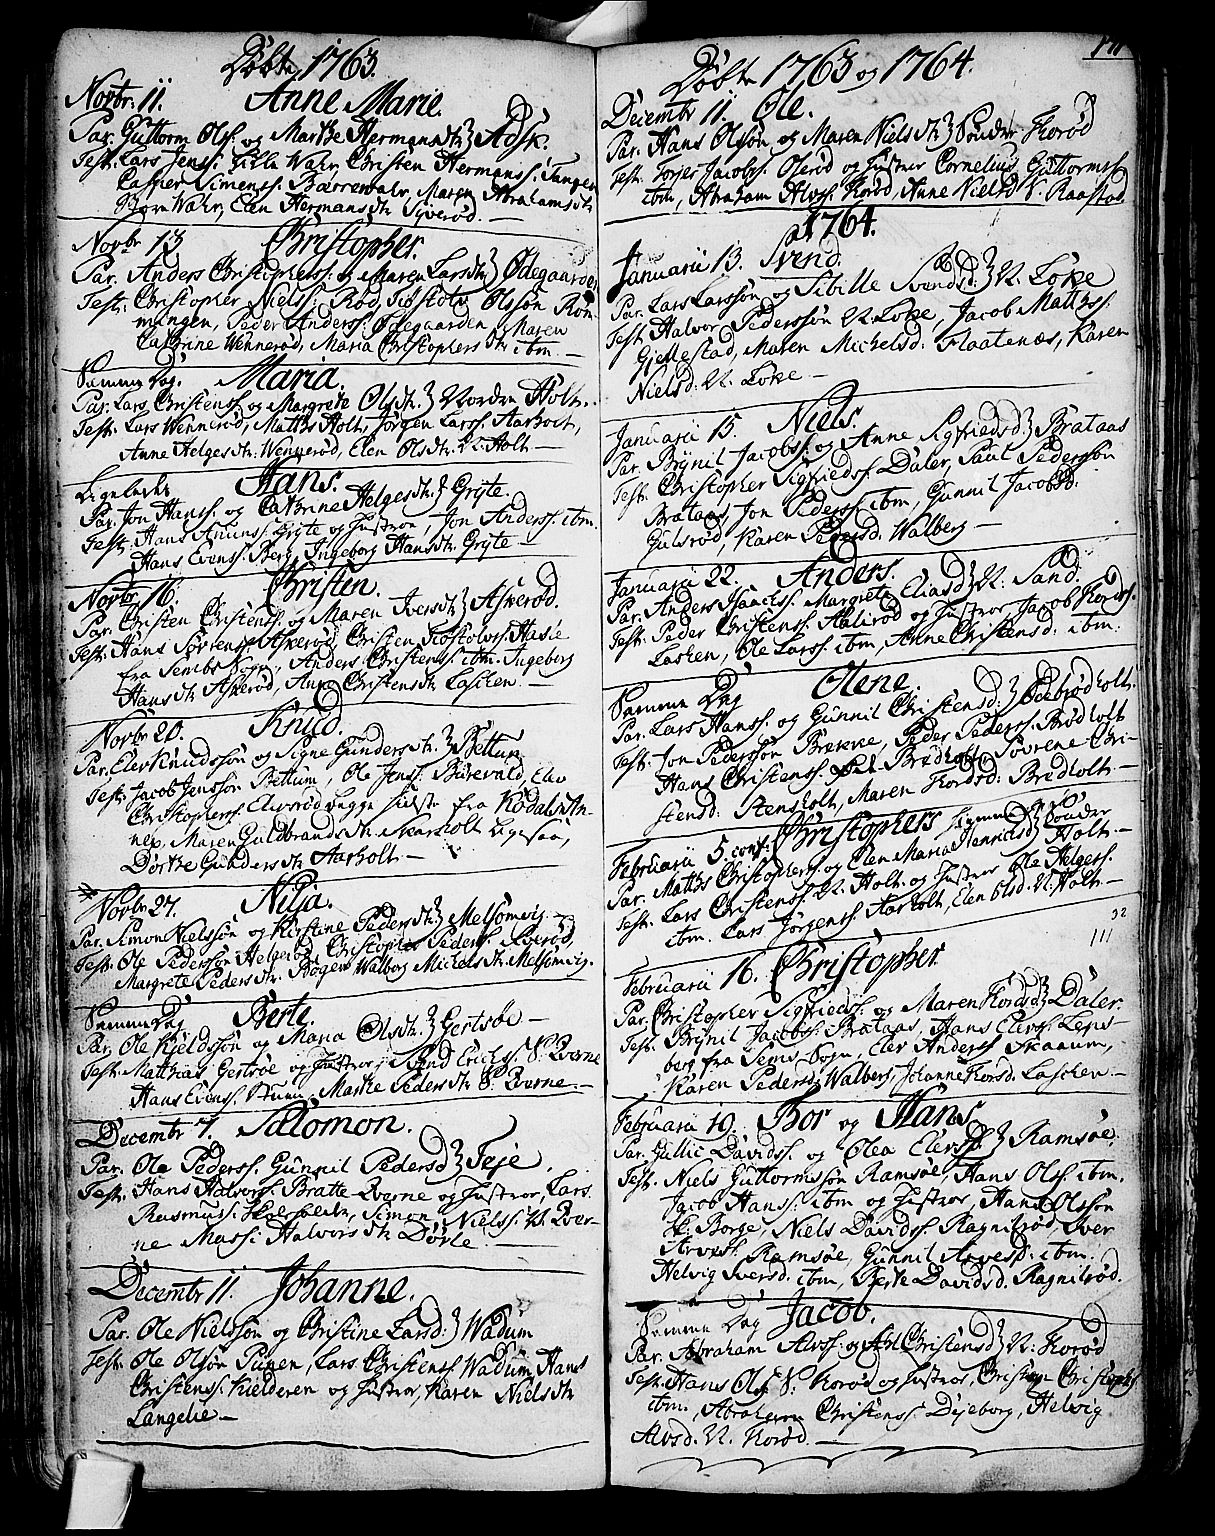 Døbte 1763.
Novbr. 11. Anne Marie.
Par. Guttorm Olss. og Marthe Hermansdtr. Adsk.
Test. Lars Jenss. Wahr, Christen Hermanss. Tangen
Casper Simenss. Bærrevahr, Maren Abrahamsdtr.
Biørn Wahr, Elen Hermansdtr. Syverød. —
Novbr. 13 Christopher.
Par. Anders Christopherss. og Maren Larsdtr. Ødegaarden
Test. Christopher Nielss. Rød, Olssøn Røn-
ningen, Peder Anderss. Ødegaarden, Maren
Cathrine Wennerød, Maria Christophersdtr. ibm. —
Samme Dag. Maria.
Par. Lars Christenss. og Margrete Olsdtr. Nordre Holt.
Test. Lars Wennerød, Matths Holt, Jørgen Larss. Aarholt,
Anne Helgesdtr. Wennerød, Elen Olsdtr. N. Holt —
Ligeledes Hans.
Par. Jon Hanss. og Cathrine Helgesdtr. Gryte.
Test. Hans Amunss. Gryte og Hustroe, Jon Anderss. ibm.
Hans Evenss. Berg, Ingeborg Hansdtr. Gryte —
Novbr. 16. Christen.
Par. Christen Christenss. og Maren Iversdtr. Askerød.
Test. Hans Sørenss. Askerød, Christen Hasle
fra Semb Sogn, Anders Christenss. ibm. Ingeborg
Hansdtr. Askerød, Anne Christensdtr. Lasken. —
Novbr. 20. Knud.
Par. Elev Knudssøn og Signe Gundersdtr. Bettum
Test. Jacob Jenssøn Bettum, Ole Jenss. Burevald, Elev
Christopherss. Alvsrød begge sidste fra Kodals An-
nex, Maren Guldbrandsdtr. Skarsholt ligesaa,
Dorthe Gundersdtr. Aarholt. —
Novbr. 27. Nilia.
Par. Simon Nielssøn og Kirstine Pedersdtr. Melsomvig.
Test. Ole Pederssøn Helgerød, Christopher Pederss.
Margrete Pedersdtr. Bøgen Walborg Michelsdtr. Melsomvig.
Samme Dag Berte.
Par. Ole Kieldssøn og Maria Olsdtr. Gertsøe —
Test. Matthias Gertsøe og Hustroe, Svend Erichss. S. Qverne
Hans Evenss. Stuum, Marthe Pedersdtr. S. Qverne. —
Decembr 7. Salomon.
Par. Ole Pederss. Gunnil Pedersd. Feje.
Test. Hans Halvorss. Bratte Qverne og Hustroe, Lars
Rasmuss. Simon Nielss. N. Qver-
ne Massi Halvorsdtr. Dørle. —
Decembr 11. Johanne.
Par. Ole Nielssøn og Christine Larsd. Wadum
Test. Ole Olssøn Lars Christenss. Wadum Hans
Christenss. Kielderen og Hustroe, Karen Nielsdtr.
Langelie. —
Døbte 1763 og 1764.
Decembr 11. Ole.
Par. Hans Olssøn, og Maren Nielsdtr. Sønder Korød
Test. Torger Jacobss. Oserød og Hustroe Cornelius Guttormss.
ibm, Abraham Alvss. Korød, Anne Nielsd. N. Raastad.
1764.
Januarii 13. Svend.
Par. Lars Larssøn og Sibille Svendsd. N. Løke
Test. Halvor Pederssøn N. Løke, Jacob Matthss.
Gjellestad, Maren Michelsd. Flaatenæs, Karen
Nielsd. N. Løke —
Januarii 15. Niels.
Par. Brynil Jacobss. og Anne Sigfriedsd. Brataas
Test. Christopher Sigfriedss. Daler, Paul Pederssøn
Brataas, Jon Pederss. ibm, Gunnil Jacobsd.
Gulsrød, Karen Pedersd. Walberg —
Januarii 22. Anders.
Par. Anders Isachss. Margrete Eliasd. N. Sand.
Test. Peder Christenss. og Hustroe Jacob Kordss.
Lasken, Ole Larss. ibm, Anne Christensd. ibm.
Samme Dag Olene.
Par. Lars Hanss. og Gunnil Christensd.
Test. Jon Pederssøn Brekke, Peder Pederss. Brødholt
Hans Christenss. Brødholt Søvrene Chri-
stensd. Stensholt, Maren Kordsd. Bredholt —
Februarii 5. conf. Christophers
Par. Matths Christopherss. og Elen Maria Henricsd. Sønder Holt. —
Test. Lars Christenss. N. Holt og Hustroe Ole Helgess.
ibm. Lars Jørgenss. Aarholt, Elen Olsd. N. Holt —
32
111
Februarii 16. Christopher
Par. Christopher Sigfriedss. og Maren Kordsd. Daler.
Test. Brynil Jacobss. Brataas, Hans Elevss. Lens-
berg fra Sems Sogn, Elev Anderss. Skaaum,
Karen Pedersd. Walberg, Johanne Kordsd. Lasken. —
Februarii 19. Bor og Hans.
Par. Gullic Davidss. og Olea Elevsd. Ramsøe,
Test. Niels Guttormssøn Ramsøe, Hans Olss. ibm.
Jacob Hanss. ibm og Hustroe, Hans Olssøn
Sk. Borge, Niels Davidss. Ragnilrød, Iver
Arvess. Ramsøe, Gunnil Arvesd. ibm.
Helvig Iversd. ibm, Berte Davidsd. Ragnilrød.
Samme Dag Jacob.
Par. Abraham Alvss. og Christensd. N. Korød
Test. Hans Olss. S. Korød og Hustroe, Christen Christophs.
ibm, Abraham Christenss. Dyeborg, Helvig
Alvsd. N. Korød. —